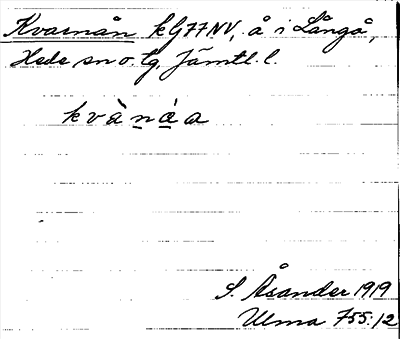 Kvarnån kG77NV, å i Långå,
Hede sn o. tg. Jämtl. l.
kvànáa
S. Åsander 1919
Ulma 755:12